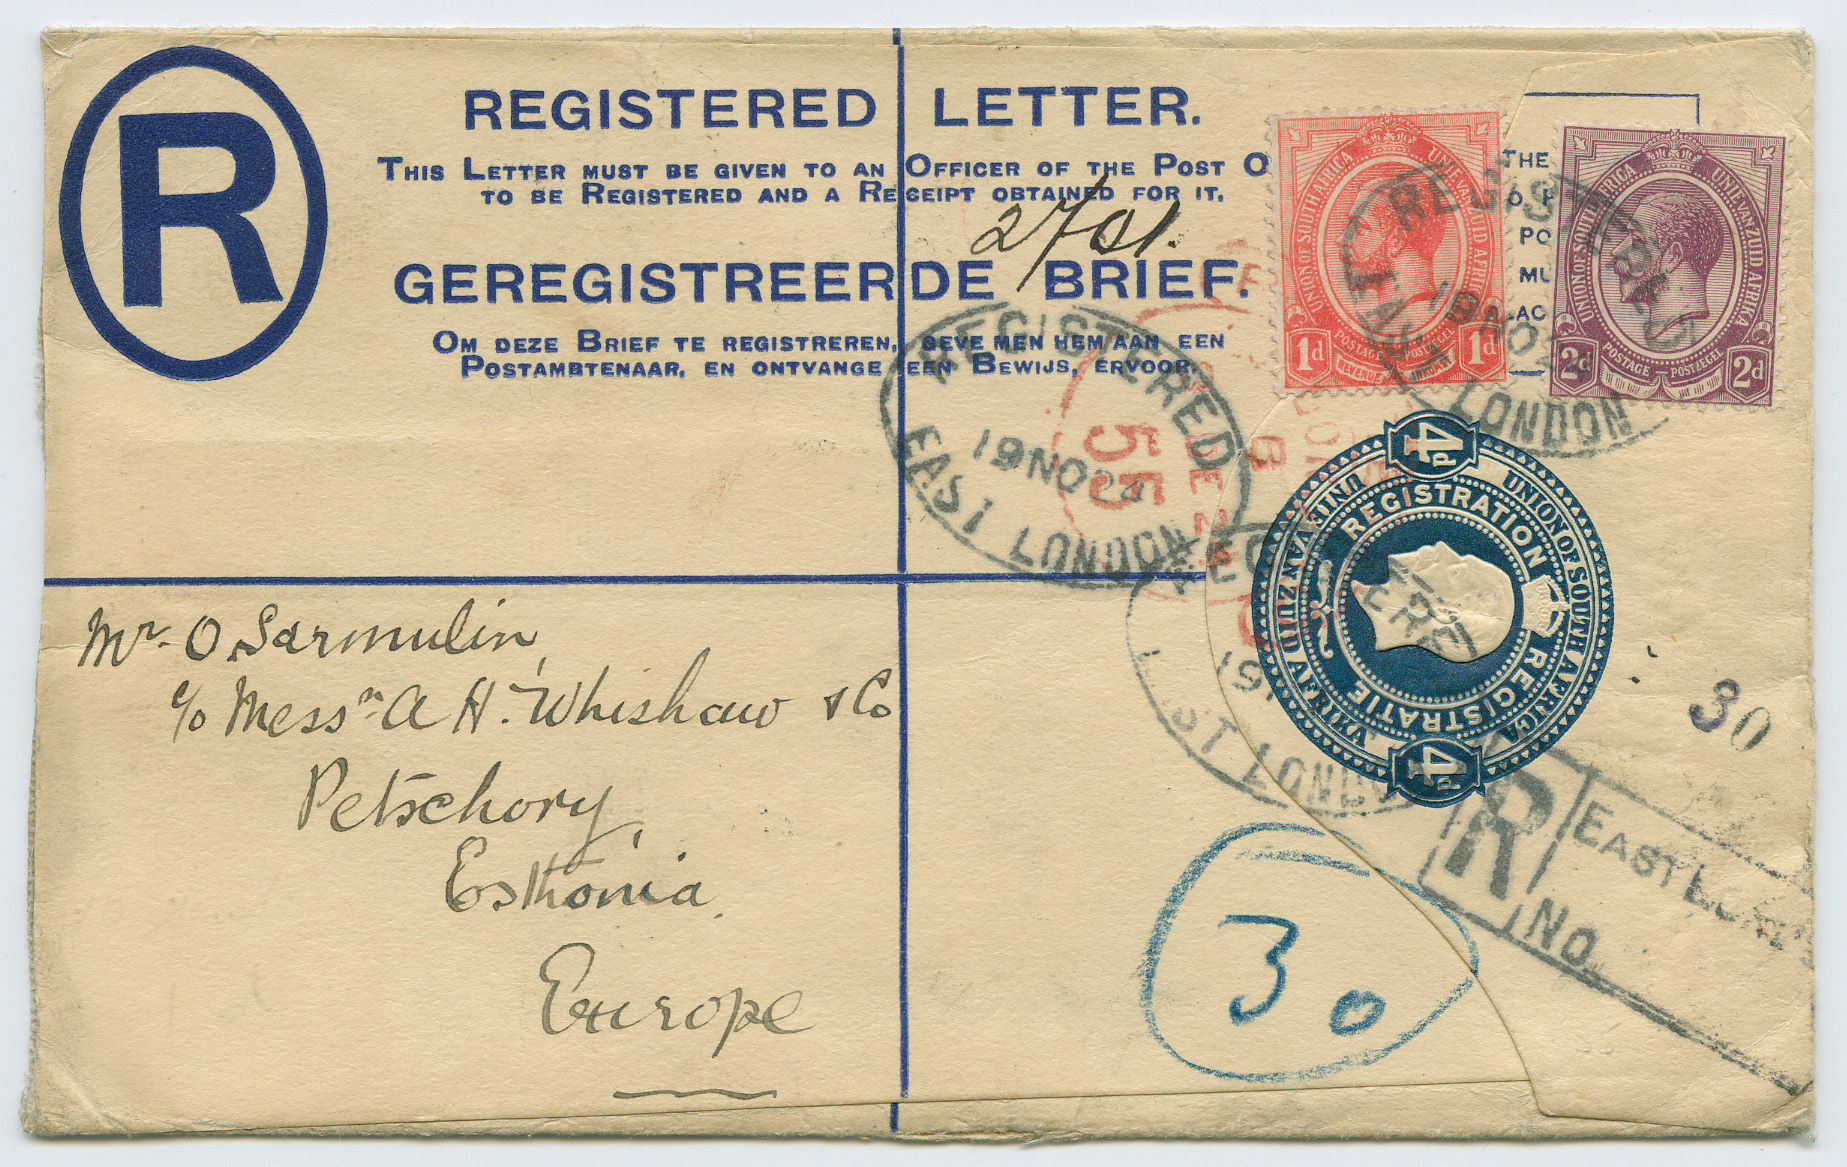 R
REGISTERED LETTER.
THIS LETTER MUST BE GIVEN TO AN OFFICER OF THE POST O
TO BE REGISTERED AND A RECEIPT OBTAINED FOR IT.
2701.
GEREGISTREERDE BRIEF.
OM DEZE BRIEF TE REGISTREREN, GEVE MEN HEM AAN EEN
POSTAMBTENAAR, EN ONTVANGE EEN BEWIJS, ERVOOR.
THE
PO
MU
AC
UNION OF SOUTH AFRICA UNIE VAN ZUID AFRIKA
1d POSTAGE POSTZEGEL 1d
REVENUE INKOMST
UNION OF SOUTH AFRICA UNIE VAN ZUID AFRIKA
2d POSTAGE POSTZEGEL 2d
REGISTERED
19 NO 24
EAST LONDON
REGISTERED
19 NO 24
EAST LONDON
55
DE 24
4D
UNION OF SOUTH AFRICA
UNIE VAN ZUID AFRIKA
REGISTRATION
REGISTRATIE
4D
EAST LONDO
Mr. O. Sarmulin,
c/o Messrs A H. Whishaw & Co
Petschory,
Esthonia
Europe
30
R EAST LONDON
NO
30